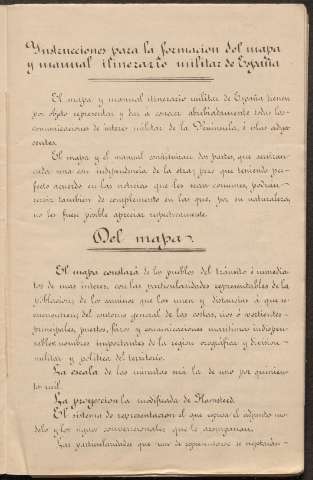 Instrucciones para la formacion del mapa
y manual itinerario militar de España
El mapa y manual itinerario militar de España tienen
por objeto representar y dar a conocer detalladamente todas las
comunicaciones de interes militar de la Peninsula, é islas adya-
centes.
El mapa y el manual constituiran dos partes, que
cada una con independencia de la otra, pero que teniendo per-
fecto acuerdo en las noticias que les sean comunes, podran
servir tambien de complemento en las que, por su naturaleza,
no les fuese posible aparecer respectivamente.
Del mapa.
El mapa constará de los pueblos del tránsito é inmedia-
tos de mas interes, con las particularidades representables de la
poblacion; de los caminos que los unen y distancias á que se
encuentren; del contorno general de las costas, rios ó vertientes
principales, puertos, faros y comunicaciones maritimas indispen-
sables; nombres importantes de la region orográfica y division
militar y politica del territorio.
La escala de las minutas será la de uno por quinien-
tos mil.
La proyeccion la modificada de Flamsteed.
El sistema de representacion el que expresa el adjunto mo-
delo y los signos convencionales que le acompañan.
Las particularidades que han de representarse se sujetarán